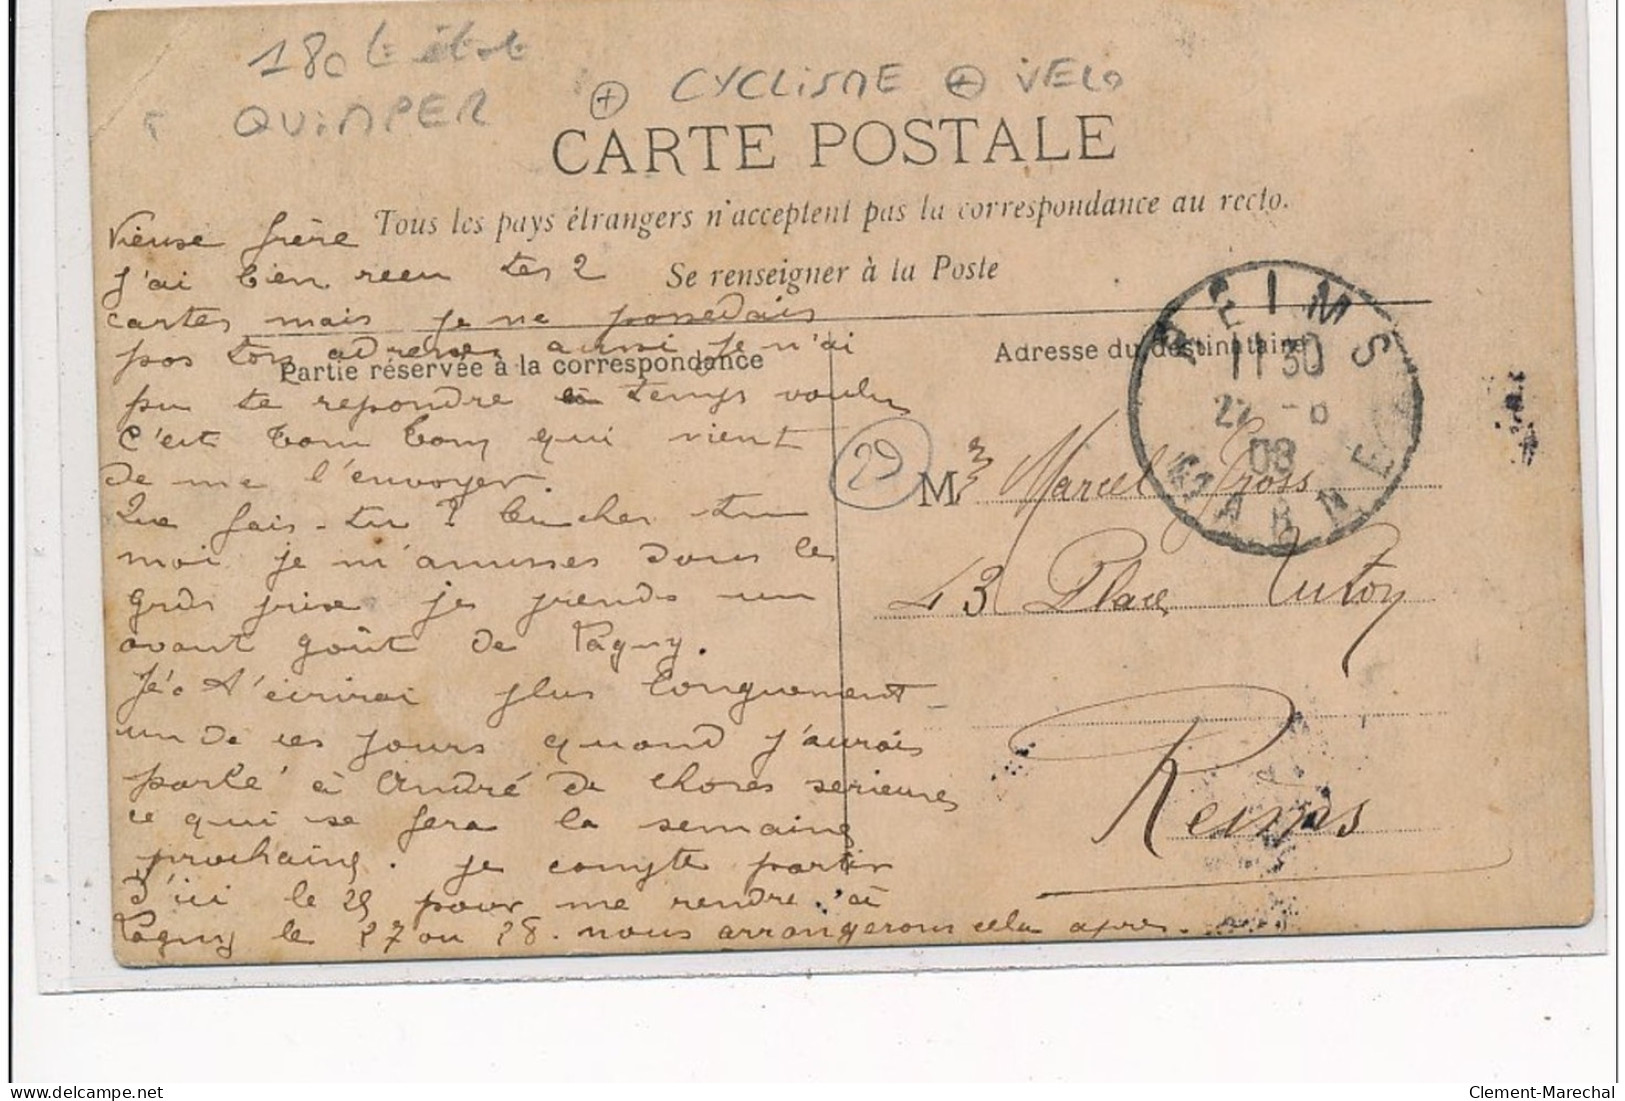 180 t
QUIMPER
+ CYCLISME + VELO
CARTE POSTALE
Tous les pays étrangers n'acceptent pas la correspondance au recto.
Se renseigner à la Poste
Partie réservée à la correspondance
Adresse du destinataire
Vieuse frère
J'ai bien recu tes 2
cartes mais je ne possedais
pas ton adresse, aussi je n'ai
pu te repondre en temps voulu
C'est Tom Tom qui vient
de me l'envoyer.
Que fais-tu ?
moi je m'amuses dans les
grds prix je prends un
avant goût de Pagny.
Je t'écrirai plus longuement
un de ces jours quand j'aurais
parlé à André de choses serieuses
ce qui se fera la semaine
prochaine. je compte partir
d'ici le 25 pour me rendre à
Pagny le 27 ou 28. nous arrangerons cela apres.
REIMS
11 30
22 -8
08
MARNE
29
M Marcel Gross
43 Place
Reims
Clement-Marechal